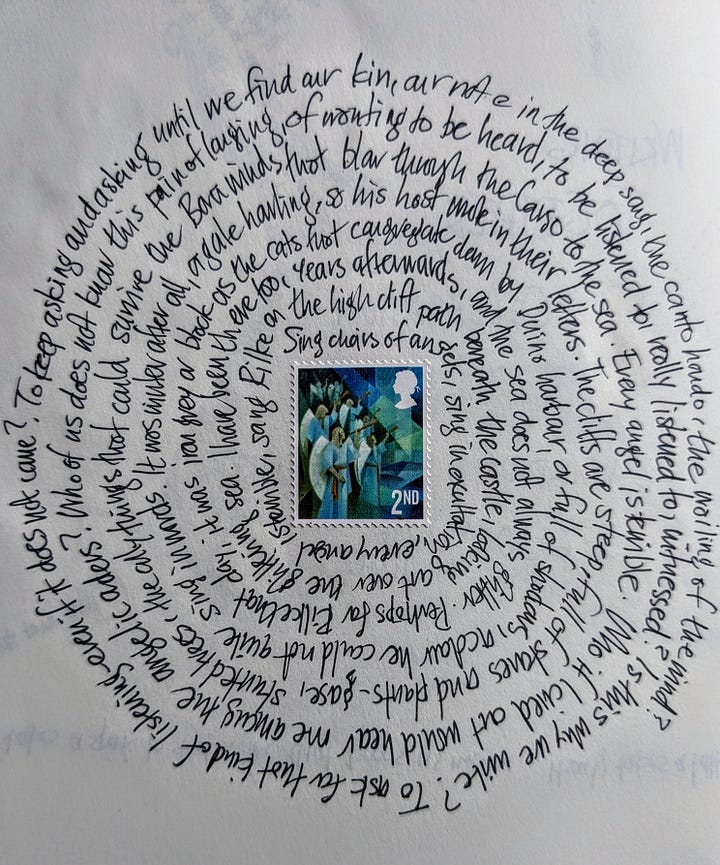 Sing choirs of angels, sing in exultation, every angel
is terrible, sang Rilke on the high cliff path beneath the castle looking out over the
glittering sea. I have been there too, years afterwards, and the sea does not always glitter. Perhaps for Rilke that
day it was iron grey or black as the cats that congregate down by Duino harbour or full of shadows, a colour he could not quite
sing in words. It was winter after all, a gale howling, so his host wrote in their letters. The cliffs are steep, full of stones and plants - gorse, stunted trees,
the only things that could survive the Bora winds that blow through the Carso to the sea. Every angel is terrible. Who if I cried out would hear me among the angelic orders
? Who of us does not know this pain of longing, of wanting to be heard, to be listened to, really listened to, witnessed? Is this why we write? To ask for that kind of listening - even if it does not come?
To keep asking and asking until we find our kin, our note in the deep song, the canto hondo, the wailing of the wind?
2ND